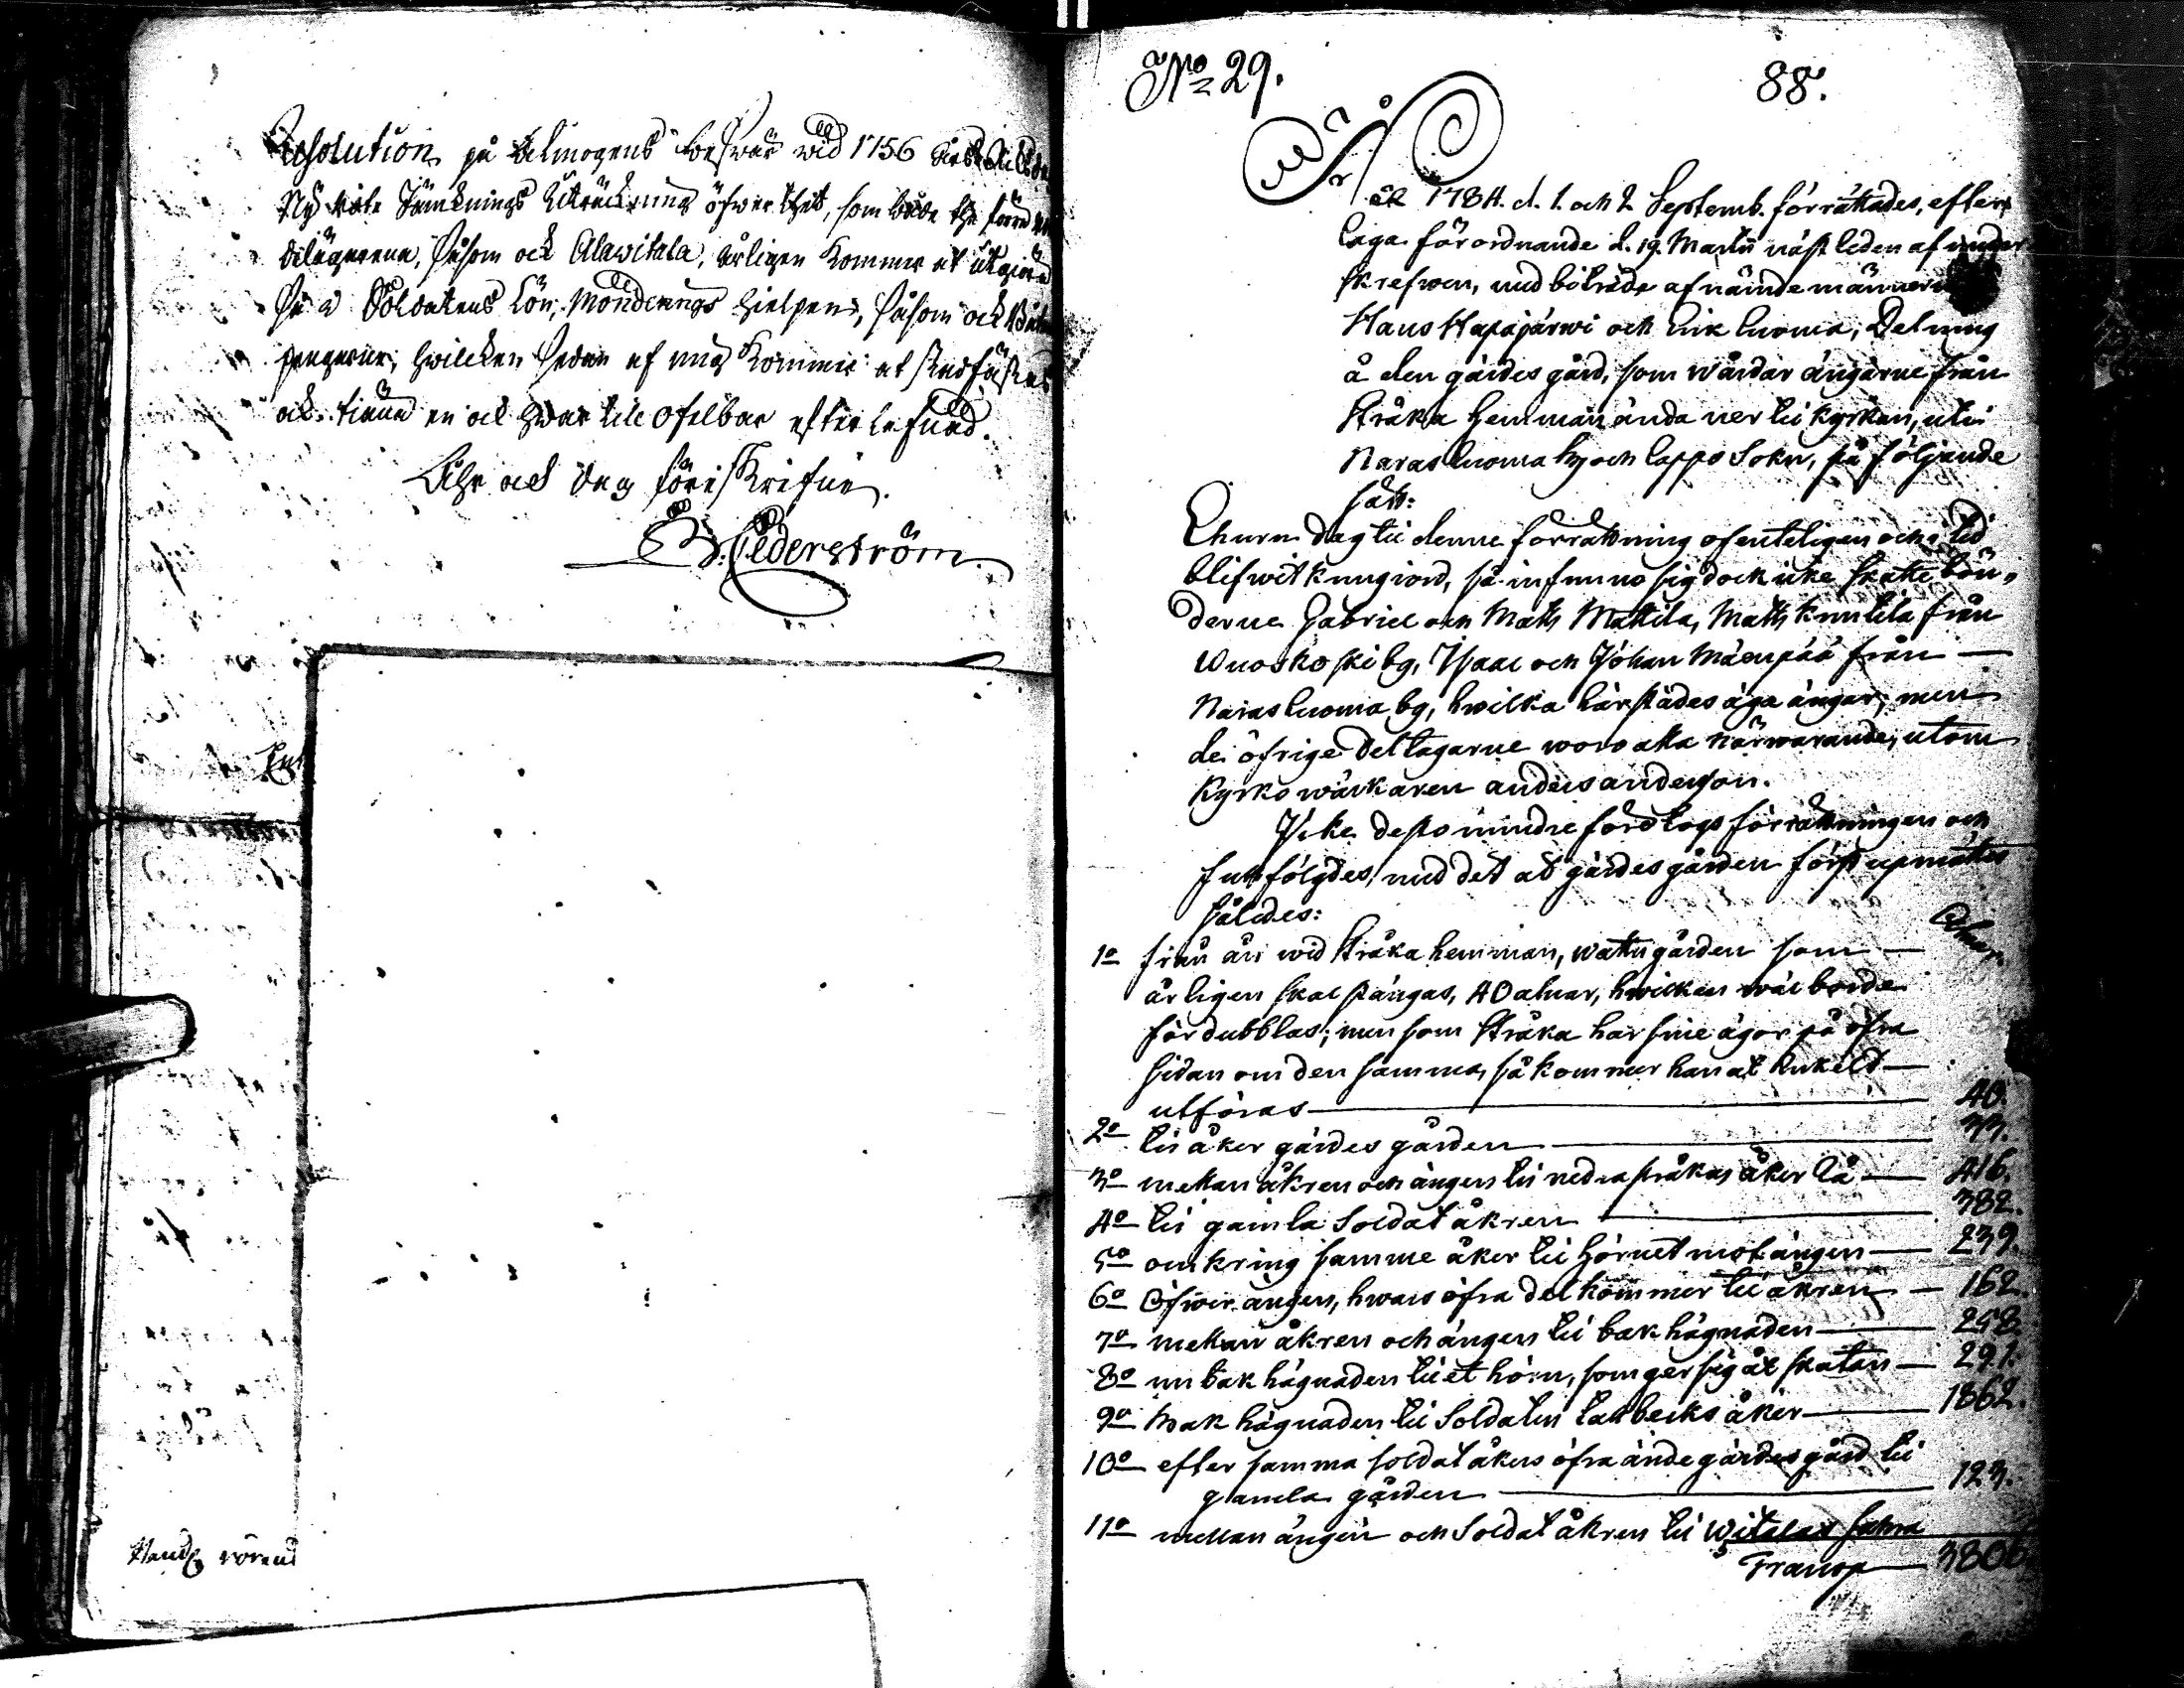 Resolution på Almogens beswär wid 1756
Ny Rote Jämknings Uträckning öfwer thet, som både the
Delägarena, såsom ock Alawitala, årligen kommer at utgiöra
På Soldatens Lön, Monderings hielpen, såsom ock
pengarne, hwilcken sedan af mig kommer at stadfästas
ock tiäna en ock hwar till ofelbar efterlefnad.
Åhr ock dag föreskrifne.
Cederström
Handl rörand
No 29.
88.
År 1784. d. 1. och 2 Septemb. förrättades, efter
laga förordnande d. 19. Martii näst leden af under
skrefwen, med biträde af nämndemännerne
Hans Hapajärwi och Erik Luoma, Delning
å den gärdesgård, som wårdar ängarne från
Stråka hemman ända ner til kyrkan, uti
Narasluoma by och Lappo Sokn, på följande
sätt:
Ehuru dag til denne förrättning ofenteligen och i tid
blifwit kungiord, så infunno sig dock icke skatte bön-
derne Gabriel och Matts Mattila, Matts Knutila från
Wuoskoski by, Isaac och Johan Mäenpää från
Narasluoma by, hwilka härstädes äga ängar; men
de öfrige deltagarne woro alla närwarande, utom
Kyrkowäcktaren Anders Anderson.
Icke desto mindre företogs förrättningen och
fullfölgdes, med det at gärdesgården först upmättes
sålides:
Alnar
1o från ån wid Stråka hemman, wattugården som
årligen skal stängas, 40 alnar, hwilken wäl borde
fördubblas; men som Stråka har sine ägor på öfra
sidan om den samma, så kommer han at enkelt
utföras 40.
2o til åker gärdesgården 33.
3o mellan åkren och ängen til nedra stråkas åker lå 416.
4o til gamla Soldat åkren 382.
5o omkring samme åker til hörnet mot ängen 239.
6o Öfwer ängen, hwars öfra del kommer til åkren 162.
7o mellan åkren och ängen til bak hägnaden 258.
8o nu bak hägnaden til et hörn, som ger sig åt skatan 291.
9o bak hägnaden til Soldaten Lakbecks åker 1862.
10o efter samma soldat åkers öfra ände gärdesgård til
gamla gården 123.
11o mellan ängen och Soldat åkren til Witalax
Transp 3806